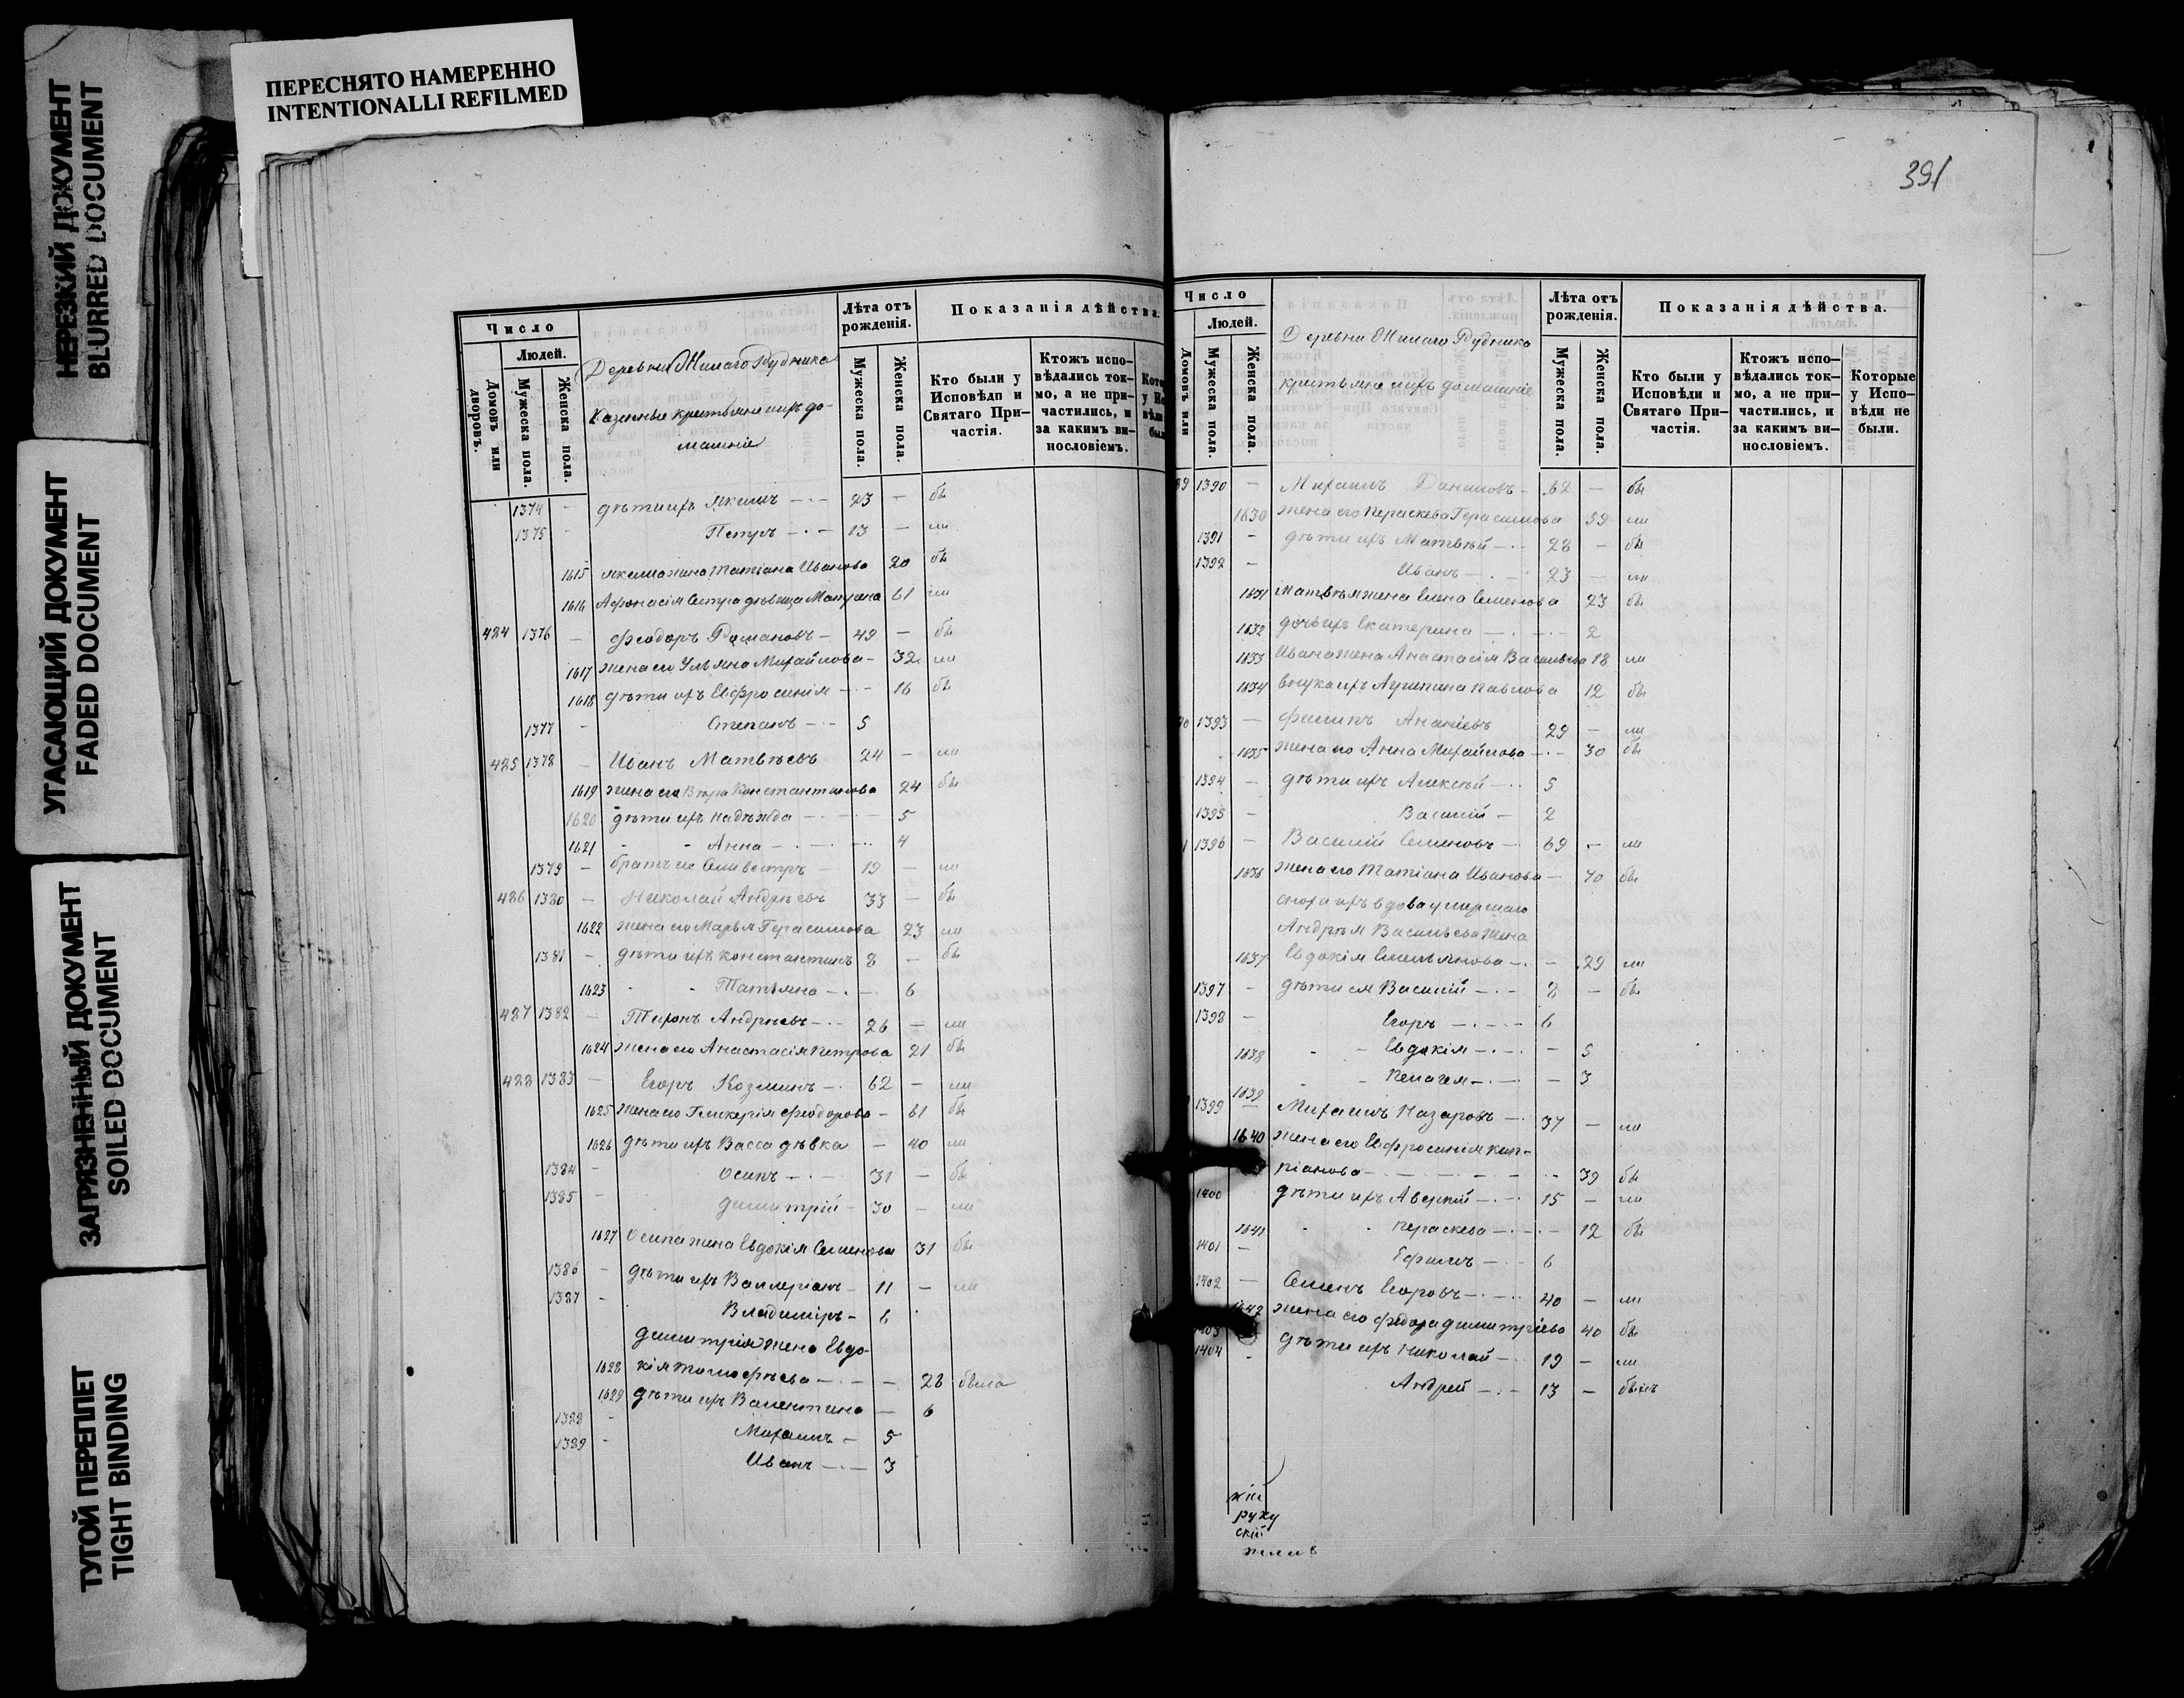 НЕРЕЗКИЙ ДОКУМЕНТ
BLURRED DOCUMENT
УГАСАЮЩИЙ ДОКУМЕНТ
FADED DOCUMENT
ЗАГРЯЗНЕННЫЙ ДОКУМЕНТ
SOILED DOCUMENT
ТУГОЙ ПЕРЕПЛЕТ
TIGHT BINDING
ПЕРЕСНЯТО НАМЕРЕННО
INTENTIONALLI REFILMED
Число
Людей.
Домовъ или дворовъ.
Мужеска пола.
Женска пола.
Деревни Рудника
Казенные крестьяне и ихъ до-
машніе
Лѣта отъ рожденія.
Мужеска пола.
Женска пола.
Показанія дѣйства.
Кто были у Исповѣди и Святаго При-частія.
Ктожъ испо-вѣдались ток-мо, а не при-частились, и за какимъ ви-нословіемъ.
1374 — дѣти ихъ Якимъ — 23 — бы
1375 — Петръ — 13 — ли
1615 Якима жена Татіана Иванова 20 бы
1616 Афонасія сестра дѣвица Матрена 61 ли
424 1376 — Феодоръ Романовъ — 49 — бы
1617 жена его Ульяна Михайлова — 32 ли
1618 дѣти ихъ Евфросинія — 16 бы
1377 — Степанъ — 5
425 1378 — Иванъ Матвѣевъ 24 — ли
1619 жена его Вѣра Константинова 24 бы
1620 дѣти ихъ Надежда — 5
1621 Анна — 4
1379 — братъ его Сильвестръ — 19 — ли
426 1380 — Николай Андрѣевъ 33 — бы
1622 жена его Марья Герасимова 23 ли
1381 — дѣти ихъ Константинъ 8 — бы
1623 Татьяна — 6
427 1382 — Тихонъ Андрѣевъ — 26 — ли
1624 жена его Анастасія Петрова 21 бы
428 1383 — Егоръ Козминъ — 62 — ли
1625 жена его Гликерія Феодорова — 61 бы
1626 дѣти ихъ Васса дѣвка — 40 ли
1384 — Осипъ — 31 — бы
1385 — Димитрій — 30 — ли
1627 Осипа жена Евдокія Семенова 31 бы
1386 — дѣти ихъ Валлеріанъ — 11 — ли
1387 — Владиміръ — 6
Димитрія жена Евдо-
1628 кія Тимофѣева — — 28 была
1629 дѣти ихъ Валентина — 6
1388 — Михаилъ — 5
1389 — Иванъ — 3
391
Число
Людей.
Домовъ или
Мужеска пола.
Женска пола.
Деревни Рудника
крестьяне и ихъ домашніе
Лѣта отъ рожденія.
Мужеска пола.
Женска пола.
Показанія дѣйства.
Кто были у Исповѣди и Святаго При-частія.
Ктожъ испо-вѣдались ток-мо, а не при-частились, и за какимъ ви-нословіемъ.
Которые у Испо-вѣди не были.
1390 — Михаилъ Даниловъ — 62 — бы
1630 жена его Пераскева Герасимова 59 ли
1391 — дѣти ихъ Матвѣй — 28 — бы
1392 — Иванъ — 23 — ли
1631 Матвѣя жена Елена Семенова 23 бы
1632 дочь ихъ Екатерина — 2
1633 Ивана жена Анастасія Васильева 18 ли
1634 внука ихъ Агрипина Павлова 12 бы
1393 — Филипъ Ананіевъ 29 — ли
1635 жена его Анна Михайлова — 30 бы
1394 — дѣти ихъ Алексѣй — 5
1395 — Василій — 2
1396 — Василій Семеновъ — 69 — ли
1636 жена его Татіана Иванова — 70 бы
сноха ихъ вдова умершаго
Андрѣя Васильева жена
1637 Евдокія Емельянова — — 29 ли
1397 — дѣти ея Василій — 8 — бы
1398 — Егоръ — 6
1638 Евдокія — — 5
1639 Пелагея — — 3
1399 — Михаилъ Назаровъ — 37 — ли
1640 жена его Евфросинія Кип-
ріанова — 39 бы
1400 дѣти ихъ Аверкій — 15 — ли
1641 Пераскева — 12 бы
1401 — Ефимъ — 6
1402 — Семенъ Егоровъ — 40 — ли
1642 жена его Федора Димитріева 40 бы
1403 дѣти ихъ Николай — 19 — ли
1404 — Андрей — 13 — былъ
кій
руку
скій